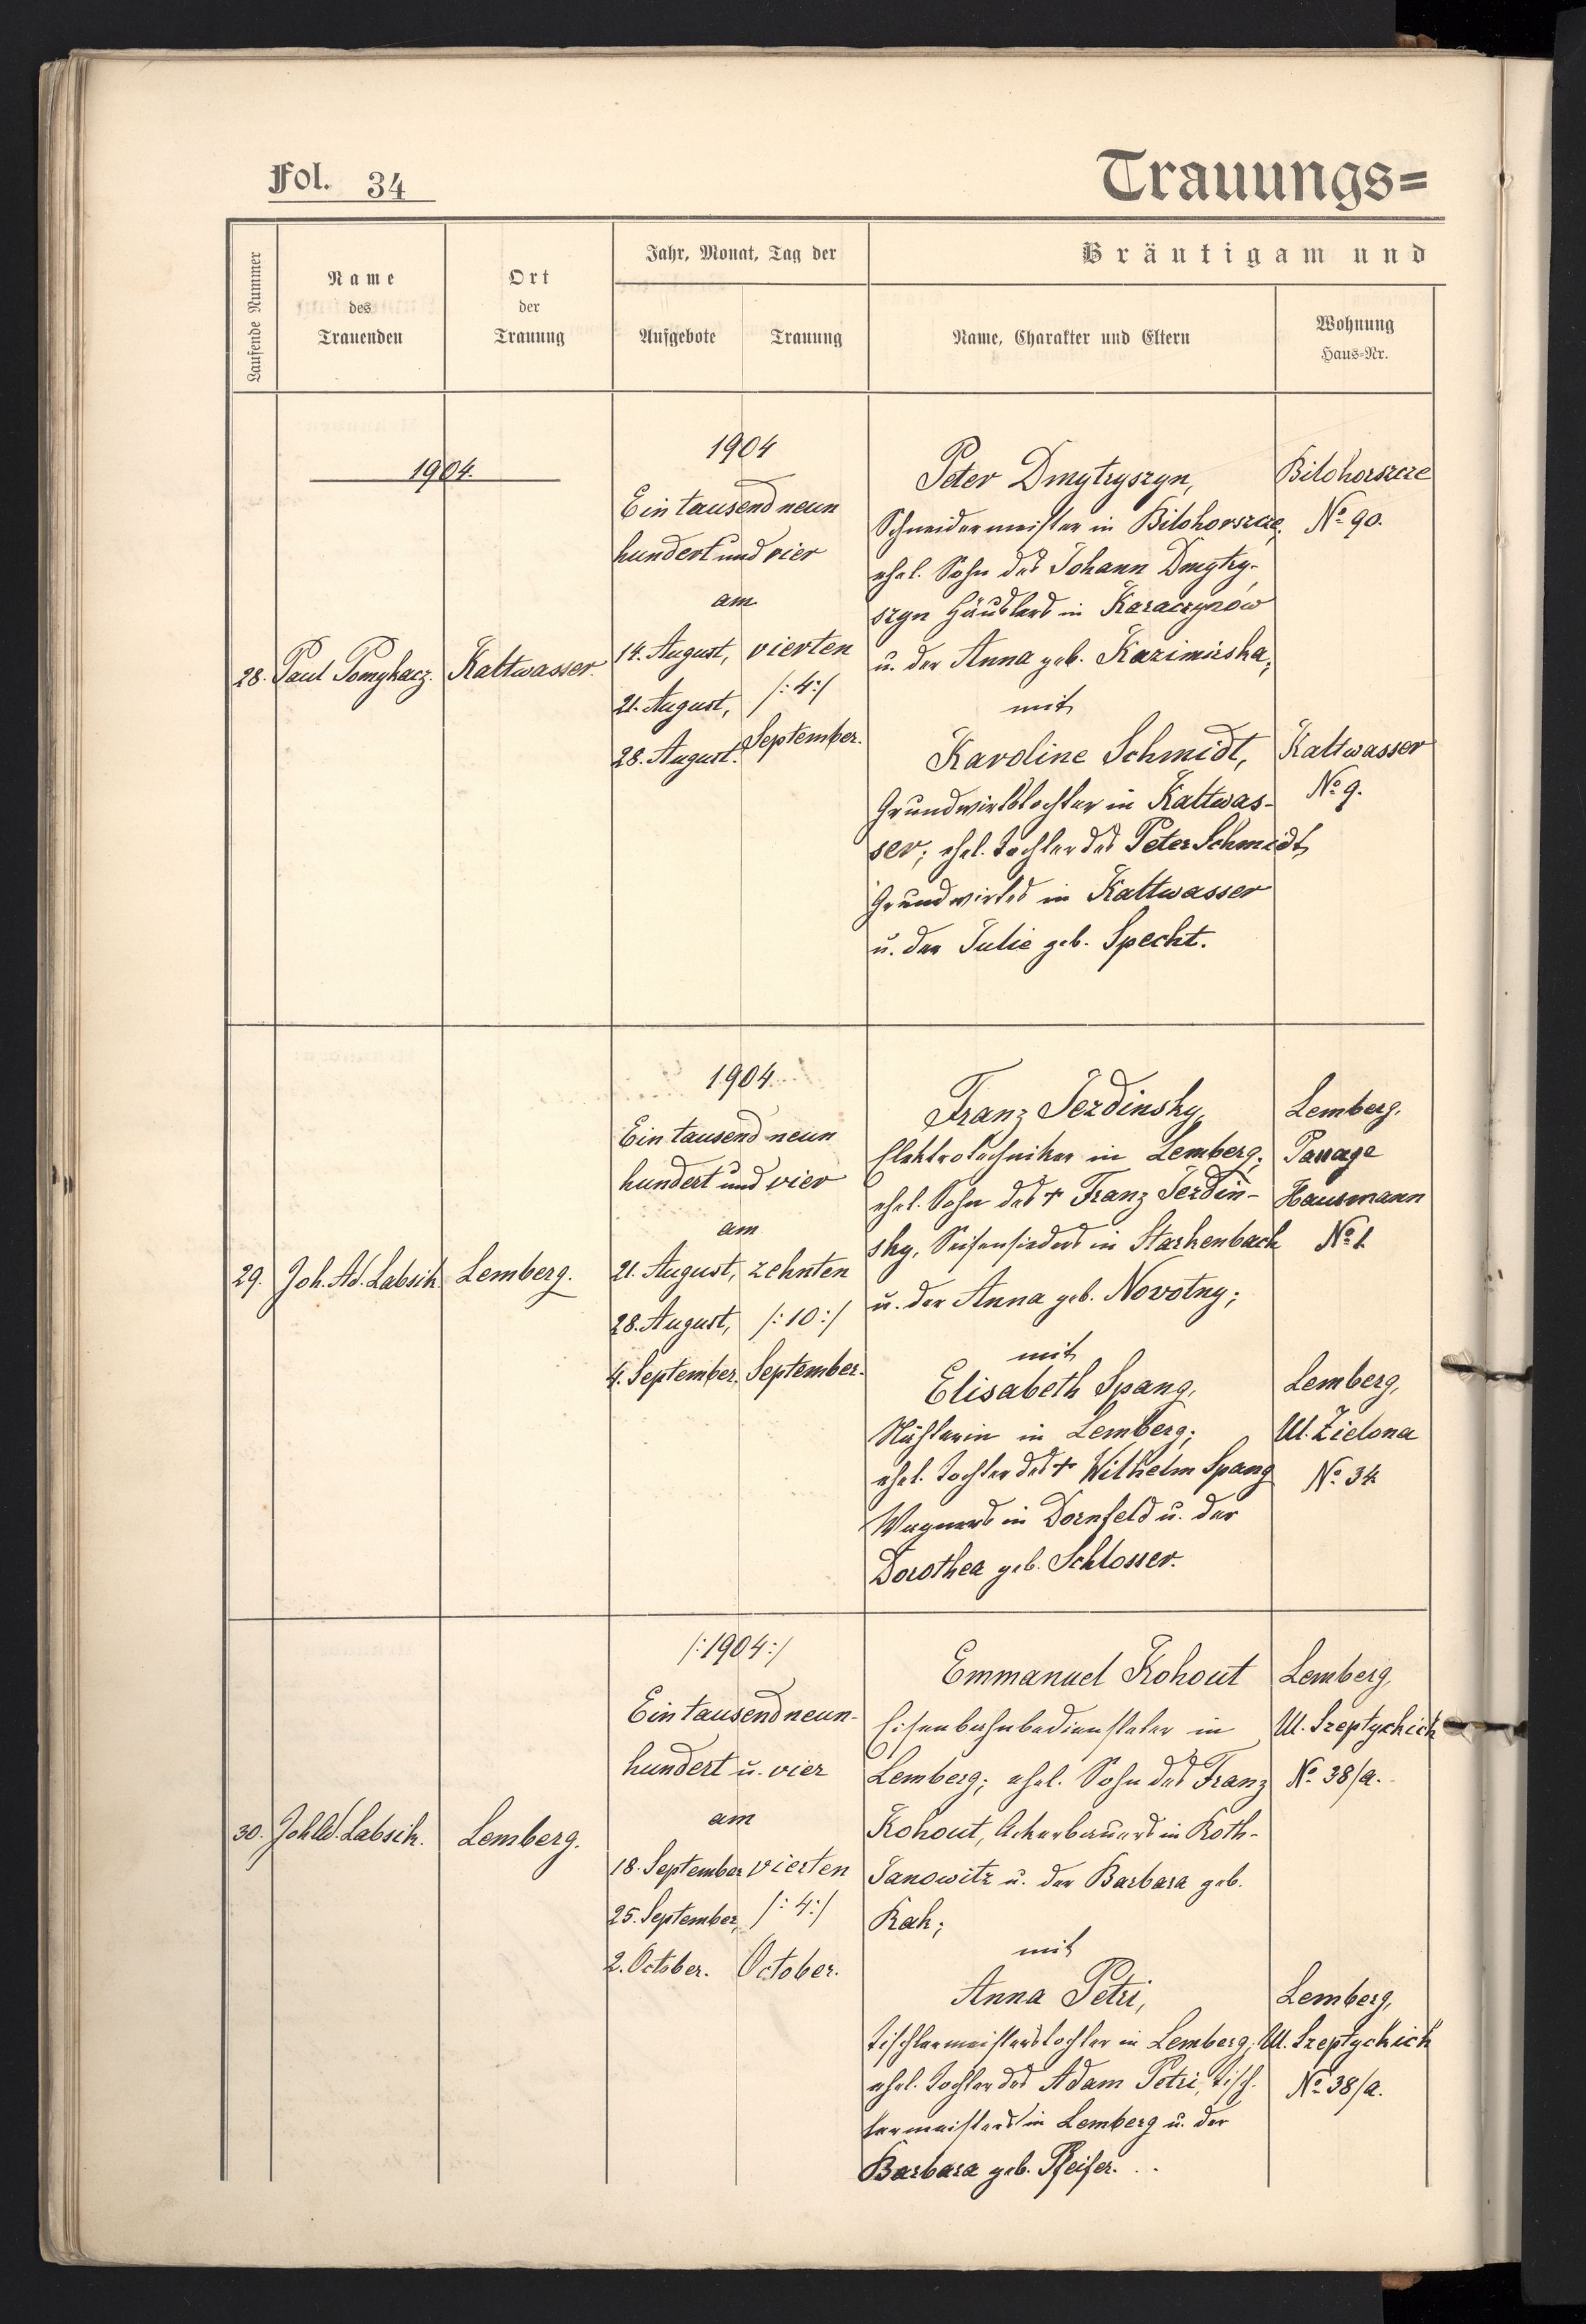 Fol. 34
Trauungs=
Laufende Nummer
Name
des
Trauenden
Ort
der
Trauung
Jahr, Monat, Tag der
Aufgebote
Trauung
Bräutigam und
Name, Charakter und Eltern
Wohnung
Haus=Nr.
1904.
28.
Paul Pomykacz.
Kaltwasser.
1904
Ein tausend neun
hundert und vier
am
14. August, vierten
21. August, /:4:/
28. August. September.
Peter Dmytryszyn,
Schneidermeister in Bilohorszcze;
ehel. Sohn des Johann Dmytry-
szyn Häuslers in Karaczynów
u. der Anna geb. Kazimirska;
mit
Karoline Schmidt,
Grundwirtstochter in Kaltwas-
ser; ehel. Tochter des Peter Schmidt,
Grundwirtes in Kaltwasser
u. der Julie geb. Specht.
Bilohorszcze
No 90.
Kaltwasser
No 9.
29.
Joh. Ad. Labsik
Lemberg.
1904
Ein tausend neun
hundert und vier
am
21. August, zehnten
28. August, /:10:/
4. September. September.
Franz Jerdinsky,
Elektrotechniker in Lemberg;
ehel. Sohn des + Franz Jerdin-
sky, Seifensieders in Starkenbach
u. der Anna geb. Novotny;
mit
Elisabeth Spang,
Nähterin in Lemberg;
ehel. Tochter des + Wilhelm Spang
Wagners in Dornfeld u. der
Dorothea geb. Schlosser.
Lemberg.
Passage
Hausmann
No 1.
Lemberg,
Ul. Zielona
No 34
30.
Joh Ad. Labsik.
Lemberg.
/:1904:/
Ein tausend neun-
hundert u. vier
am
18. September vierten
25. September, /:4:/
2. October. October.
Emmanuel Kohout
Eisenbahnbediensteter in
Lemberg; ehel. Sohn des Franz
Kohout, Ackerbauers in Roth-
Janowitz u. der Barbara geb.
Rak;
mit
Anna Petri,
Tischlermeisterstochter in Lemberg;
ehel. Tochter des Adam Petri, Tisch-
lermeisters in Lemberg u. der
Barbara geb. Pfeifer.
Lemberg,
Ul. Szeptyckich
No 38/a.
Lemberg,
Ul. Szeptyckich
No 38/a.